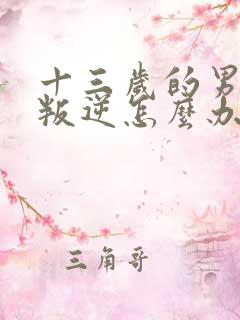 十三歲的男
叛逆怎麼办
三角哥